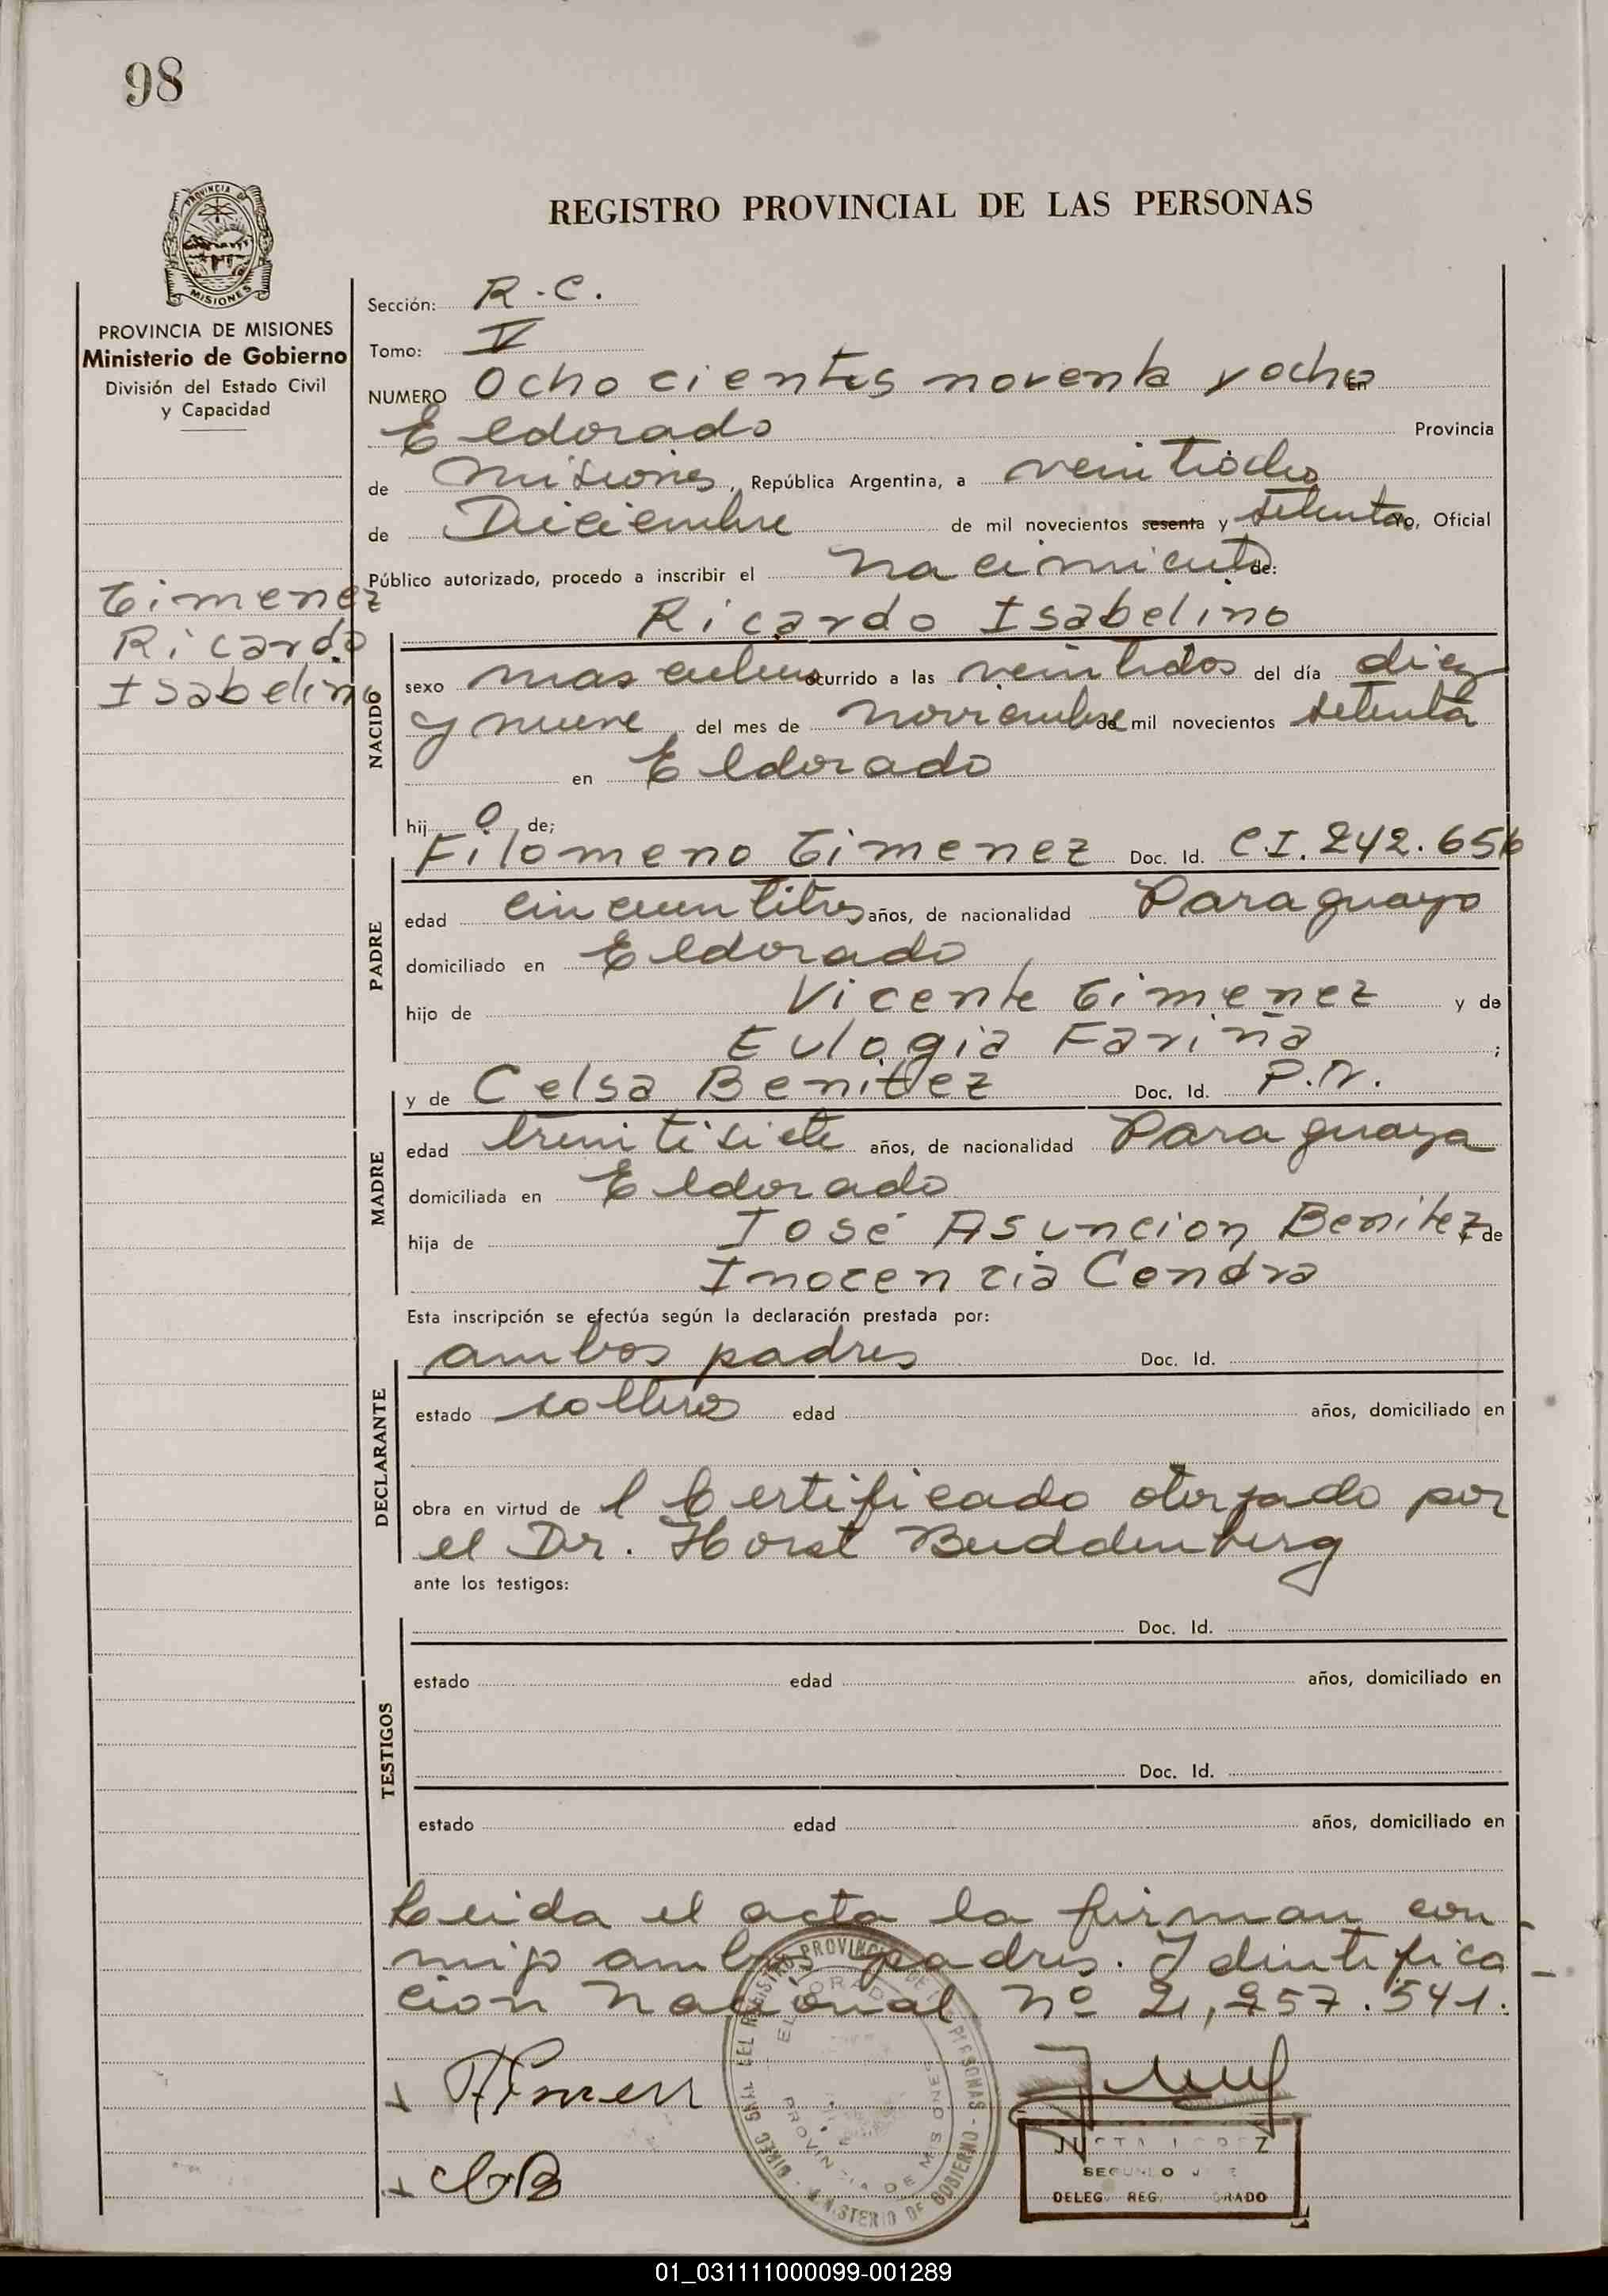 98
PROVINCIA DE
MISIONES
PROVINCIA DE MISIONES
Ministerio de Gobierno
División del Estado Civil
y Capacidad
Gimenez
Ricardo
Isabelino
REGISTRO PROVINCIAL DE LAS PERSONAS
Sección: R.C.
Tomo: V
NUMERO Ochocientos noventa y ocho En
Eldorado Provincia
de Misiones, República Argentina, a veintiocho
de Diciembre de mil novecientos sesenta y setenta yo, Oficial
Público autorizado, procedo a inscribir el nacimiento de:
Ricardo Isabelino
NACIDO
sexo masculino ocurrido a las veintidos del día diez
y nueve del mes de noviembre de mil novecientos setenta
en Eldorado
hij o de;
Filomeno Gimenez Doc. Id. CI. 242.656
PADRE
edad cincuentitres años, de nacionalidad Paraguayo
domiciliado en Eldorado
hijo de Vicente Gimenez y de
Eulogia Fariña ;
y de Celsa Benitez Doc. Id. P.N.
MADRE
edad treintisiete años, de nacionalidad Paraguaya
domiciliada en Eldorado
hija de José Asuncion Benitez y de
Inocencia Candra
Esta inscripción se efectúa según la declaración prestada por:
ambos padres Doc. Id.
DECLARANTE
estado solteros edad años, domiciliado en
obra en virtud de l Certificado otorgado por
el Dr. Horst Buddenberg
ante los testigos:
Doc. Id.
TESTIGOS
estado edad años, domiciliado en
Doc. Id.
estado edad años, domiciliado en
Leida el acta la firman con
migo ambos padres. Identifica
cion Nacional Nº 21,957.541.
DIREC. GRAL. DEL REGISTRO PROVINCIAL DE LAS PERSONAS - MINISTERIO DE GOBIERNO
ELDORADO
PROVINCIA DE MISIONES
CGB
SEGUNDO JEFE
DELEG. REG. ELDORADO
01_031111000099-001289